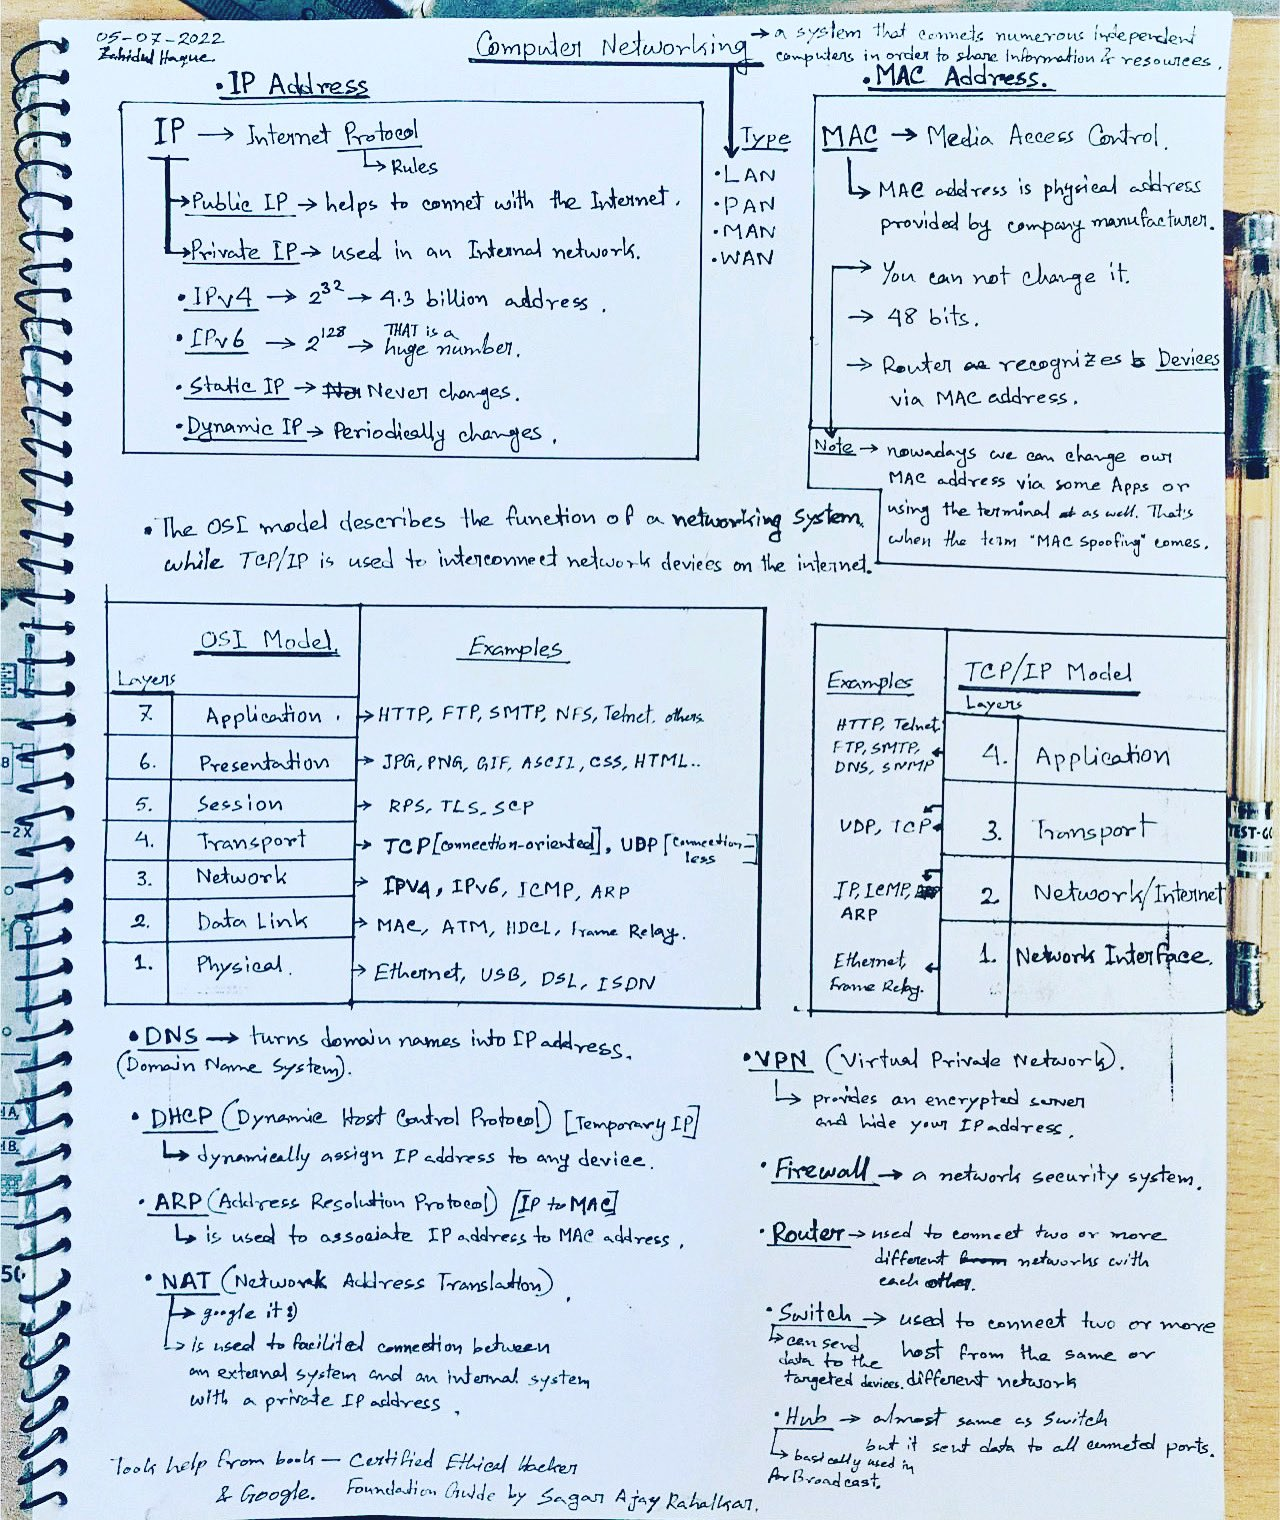 05-07-2022
Zahidul Haque
Computer Networking → a system that connets numerous independent
computers in order to share Information & resources.
• IP Address
IP → Internet Protocol
↳ Rules
→ Public IP → helps to connet with the Internet.
→ Private IP → used in an Internal network.
• IPv4 → 2^32 → 4.3 billion address.
• IPv6 → 2^128 → THAT is a
huge number.
• Static IP → Never changes.
• Dynamic IP → Periodically changes.
Type
• LAN
• PAN
• MAN
• WAN
• MAC Address.
MAC → Media Access Control.
↳ MAC address is physical address
provided by company manufacturer.
→ You can not change it.
→ 48 bits.
→ Router recognizes Devices
via MAC address.
Note → nowadays we can change our
MAC address via some Apps or
using the terminal as well. That's
when the term "MAC spoofing" comes.
• The OSI model describes the function of a networking system.
while TCP/IP is used to interconnect network devices on the internet.
OSI Model. Examples
Layers
7. Application. → HTTP, FTP, SMTP, NFS, Telnet. others
6. Presentation → JPG, PNG, GIF, ASCII, CSS, HTML..
5. Session → RPS, TLS, SCP
4. Transport → TCP [connection-oriented], UDP [connection-
less]
3. Network → IPV4, IPv6, ICMP, ARP
2. Data Link → MAC, ATM, HDCL, Frame Relay.
1. Physical. → Ethernet, USB, DSL, ISDN
Examples TCP/IP Model
Layers
HTTP, Telnet
FTP, SMTP,
DNS, SNMP
4. Application
UDP, TCP 3. Transport
IP, ICMP,
ARP
2. Network/Internet
Ethernet,
Frame Relay.
1. Network Interface.
• DNS → turns domain names into IP address.
(Domain Name System).
• DHCP (Dynamic Host Control Protocol) [Temporary IP]
↳ dynamically assign IP address to any device.
• ARP (Address Resolution Protocol) [IP to MAC]
↳ is used to associate IP address to MAC address.
• NAT (Network Address Translation).
→ google it :)
↳ is used to facilited connection between
an external system and an internal system
with a private IP address.
Took help from book — Certified Ethical Hacker
& Google. Foundation Guide by Sagar Ajay Rahalkar.
• VPN (Virtual Private Network).
↳ provides an encrypted server
and hide your IP address.
• Firewall → a network security system.
• Router → used to connect two or more
different networks with
each other.
• Switch → used to connect two or more
host from the same or
different network
↳ can send
data to the
targeted devices.
• Hub → almost same as Switch
but it sent data to all conneted ports.
↳ basically used in
for Broadcast.
TEST-GO